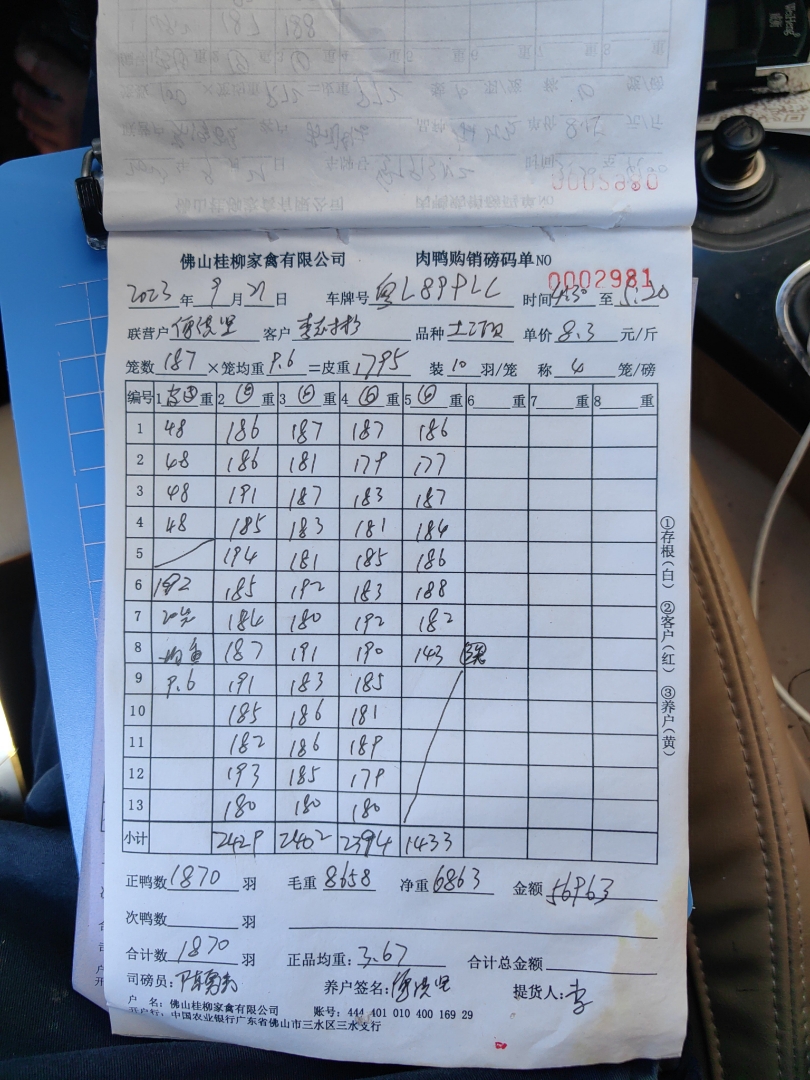 0002980
佛山桂柳家禽有限公司 肉鸭购销磅码单NO 0002981
2023年9月21日 车牌号 粤L89PLL 时间4:30至5:20
联营户 客户 品种 土 单价8.3元/斤
笼数187×笼均重9.6=皮重1795 装10羽/笼 称4笼/磅
编号 1 重 2 重 3 重 4 重 5 重 6 重 7 重 8 重
1 48 186 187 187 186
2 48 186 181 179 177
3 48 191 187 183 187
4 48 185 183 181 184
5 194 181 185 186
6 192 185 192 183 188
7 184 180 192 182
8 187 191 190 143
9 9.6 191 183 185
10 185 186 181
11 182 186 189
12 193 185 179
13 180 180 180
小计 2429 2402 2394 1433
正鸭数1870羽 毛重8658 净重6863 金额56963
次鸭数 羽
合计数1870羽 正品均重:3.67 合计总金额
司磅员: 养户签名: 提货人:李
户 名:佛山桂柳家禽有限公司 账号:444 401 010 400 169 29
开户行:中国农业银行广东省佛山市三水区三水支行
①存根(白) ②客户(红) ③养户(黄)